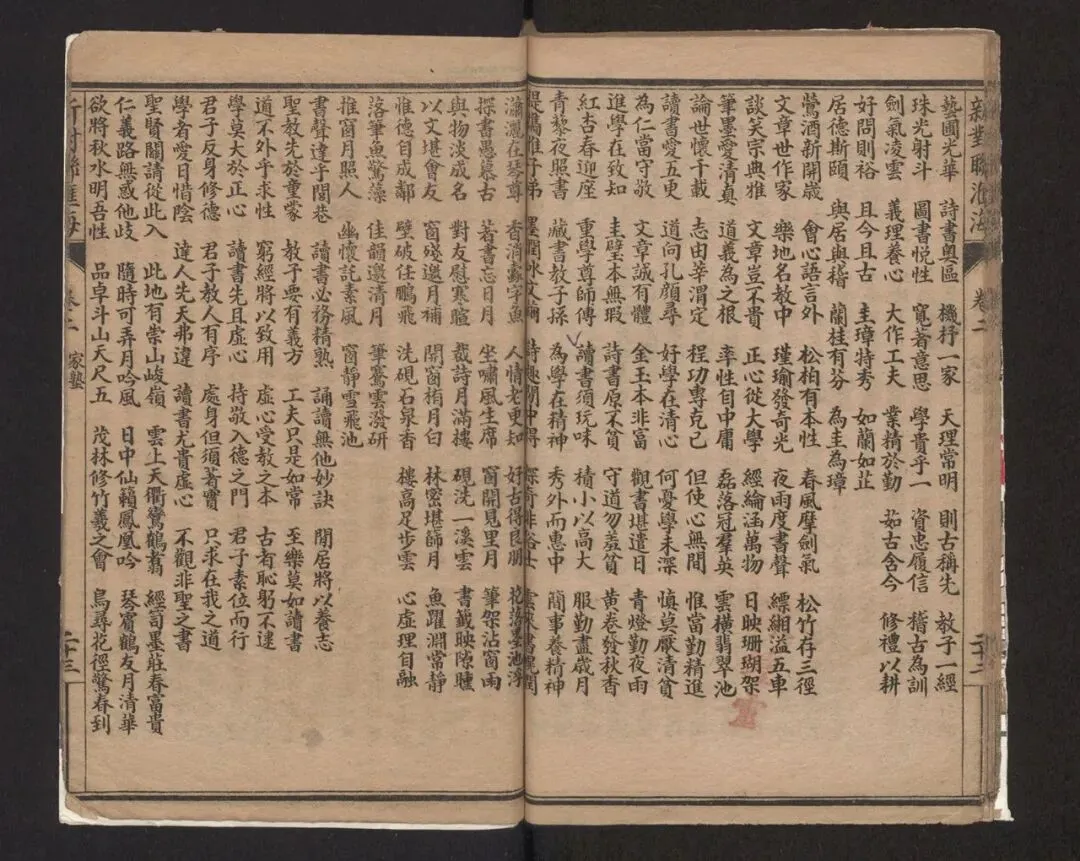 新對聯滙海 卷二 二十二
藝圃光華 詩書奧區 機杼一家 天理常明 則古稱先 教子一經
珠光射斗 圖書悅性 寬著意思 學貴乎一 資忠履信 稽古為訓
劍氣凌雲 義理養心 大作工夫 業精於勤 茹古含今 修禮以耕
好問則裕 且今且古 圭璋特秀 如蘭如芷
居德斯頤 與居與稽 蘭桂有芬 為圭為璋
鶯酒新開歲 會心語言外 松柏有本性 春風摩劍氣 松竹存三徑
文章世作家 樂地名教中 瑾瑜發奇光 夜雨度書聲 縹緗溢五車
談笑宗典雅 文章豈不貴 正心從大學 經綸涵萬物 日映珊瑚架
筆墨愛清真 道義為之根 率性自中庸 磊落冠羣英 雲橫翡翠池
論世懷千載 志由莘渭定 程功專克己 但使心無間 惟當勤精進
讀書愛五更 道向孔顏尋 好學在清心 何憂學未深 慎莫厭清貧
為仁當守敬 文章誠有體 金玉本非富 觀書堪遣日 青燈勤夜雨
進學在致知 圭璧本無瑕 詩書原不貧 守道勿羞貧 黃卷發秋香
紅杏春迎座 重學尊師傅 讀書須玩味 積小以高大 服勤盡歲月
青藜夜照書 藏書教子孫 為學在精神 秀外而惠中 簡事養精神
瀟灑在琴尊 香消蠹字魚 人情老更知 好古得良朋 花落墨池浮
探書愚慕古 著書忘日月 坐嘯風生席 窗開見里月 筆架沾窗雨
與物淡成名 對友慰寒暄 截詩月滿樓 硯洗一溪雲 書籤映隙曛
以文堪會友 窗殘邀月補 開窗栯月白 林密堪篩月 魚躍淵常靜
惟德自成鄰 壁破任鵬飛 洗硯石泉香 樓高足步雲 心虛理自融
落筆魚驚藻 佳韻邀清月 筆驚雲潑研
推窗月照人 幽懷託素風 窗靜雪飛池
書聲達乎閭巷 讀書必務精熟 誦讀無他妙訣 閒居將以養志
聖教先於童蒙 教子要有義方 工夫只是如常 至樂莫如讀書
道不外乎求性 窮經將以致用 虛心受教之本 古者恥躬不逮
學莫大於正心 讀書先且虛心 持敬入德之門 君子素位而行
君子反身修德 君子教人有序 處身但須著實 只求在我之道
學者愛日惜陰 達人先天弗違 讀書尤貴虛心 不觀非聖之書
聖賢關請從此入 此地有崇山峻嶺 雲上天衢鸞鶴翥 經笥墨莊春富貴
仁義路無惑他歧 隨時可弄月吟風 日中仙籟鳳凰吟 琴賓鶴友月清華
欲將秋水明吾性 品卓斗山天尺五 茂林修竹羲之會 鳥尋花徑驚春到
新對聯滙海 卷二 家塾 二十三